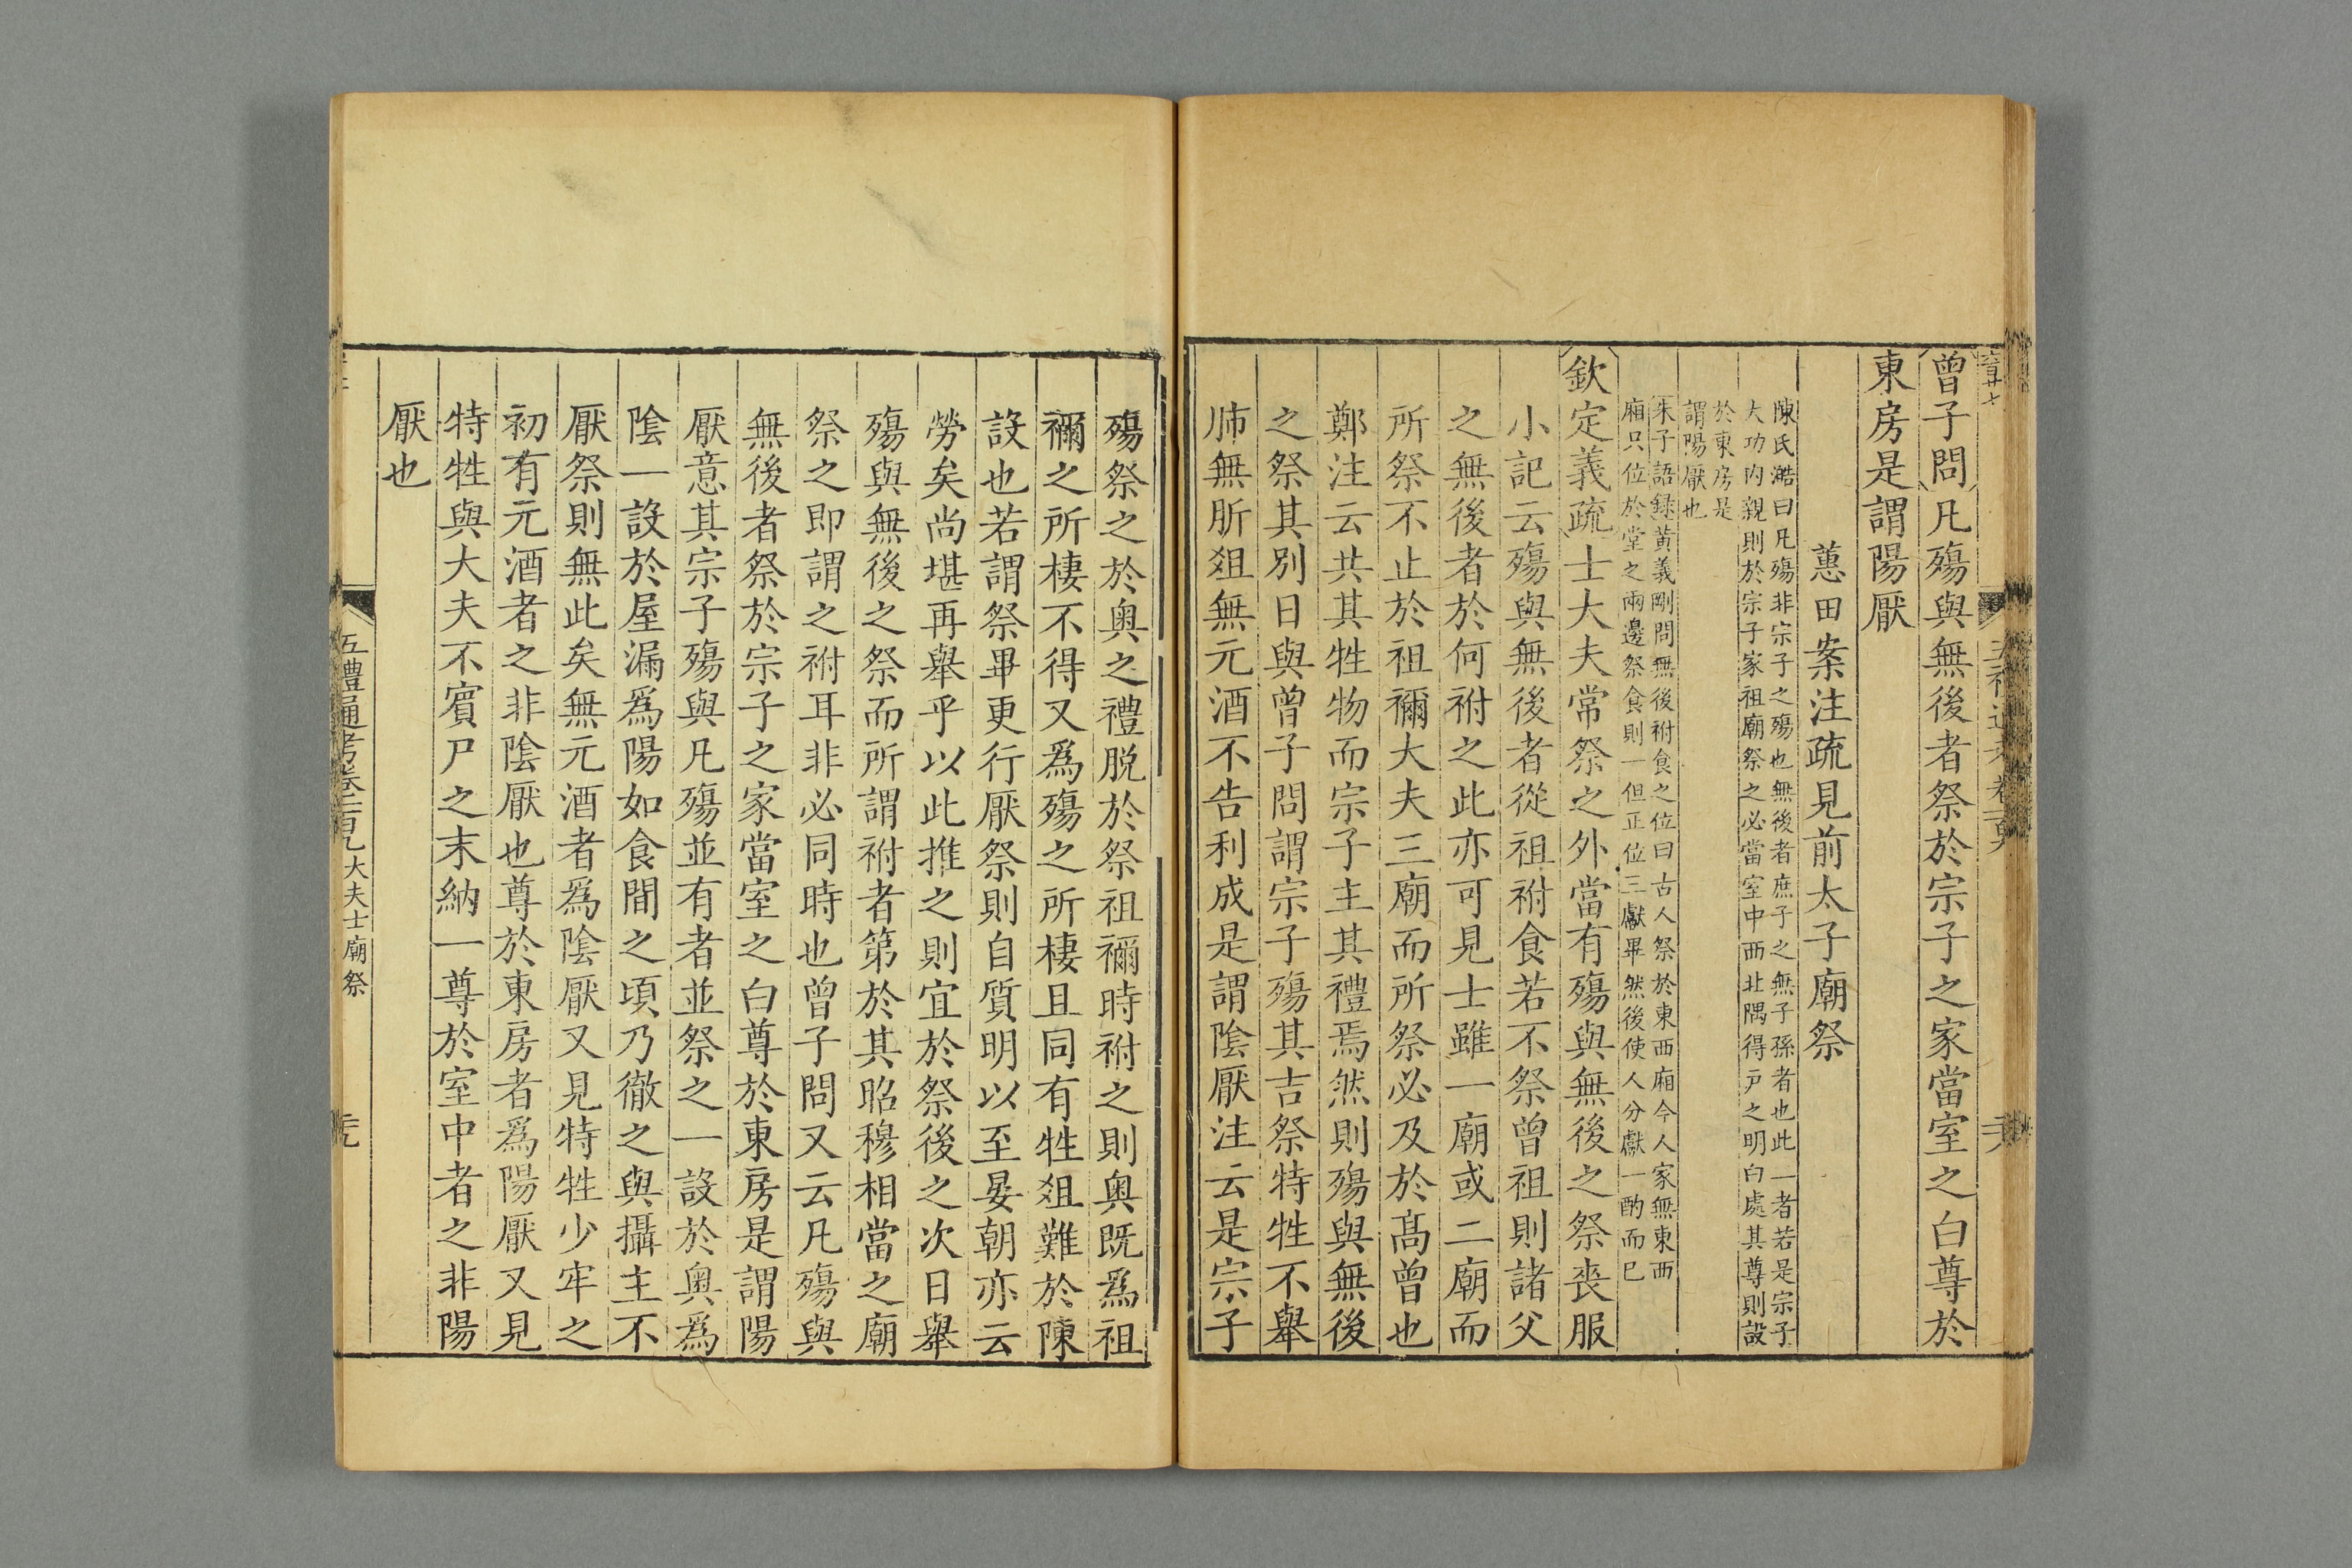 曾子問凡殤與無後者祭於宗子之家當室之白尊於
東房是謂陽厭
蕙田案注疏見前太子廟祭
陳氏澔曰凡殤非宗子之殤也無後者庶子之無子孫者也此二者若是宗子
大功內親則於宗子家祖廟祭之必當室中西北隅得戶之明白處其尊則設
於東房是
謂陽厭也
朱子語錄黃義剛問無後祔食之位曰古人祭於東西廂今人家無東西
廂只位於堂之兩邊祭食則一但正位三獻畢然後使人分獻一酌而已
欽定義疏士大夫常祭之外當有殤與無後之祭喪服
小記云殤與無後者從祖祔食若不祭曾祖則諸父
之無後者於何祔之此亦可見士雖一廟或二廟而
所祭不止於祖禰大夫三廟而所祭必及於高曾也
鄭注云共其牲物而宗子主其禮焉然則殤與無後
之祭其別日與曾子問謂宗子殤其吉祭特牲不舉
肺無肵俎無元酒不告利成是謂陰厭注云是宗子
殤祭之於奥之禮脱於祭祖禰時祔之則奥既爲祖
禰之所棲不得又爲殤之所棲且同有牲俎難於陳
設也若謂祭畢更行厭祭則自質明以至晏朝亦云
勞矣尚堪再舉乎以此推之則宜於祭後之次日舉
殤與無後之祭而所謂祔者第於其昭穆相當之廟
祭之即謂之祔耳非必同時也曾子問又云凡殤與
無後者祭於宗子之家當室之白尊於東房是謂陽
厭意其宗子殤與凡殤並有者並祭之一設於奥爲
陰一設於屋漏爲陽如食間之頃乃徹之與攝主不
厭祭則無此矣無元酒者爲陰厭又見特牲少牢之
初有元酒者之非陰厭也尊於東房者爲陽厭又見
特牲與大夫不賓尸之末納一尊於室中者之非陽
厭也
五禮通考卷一百九大夫士廟祭